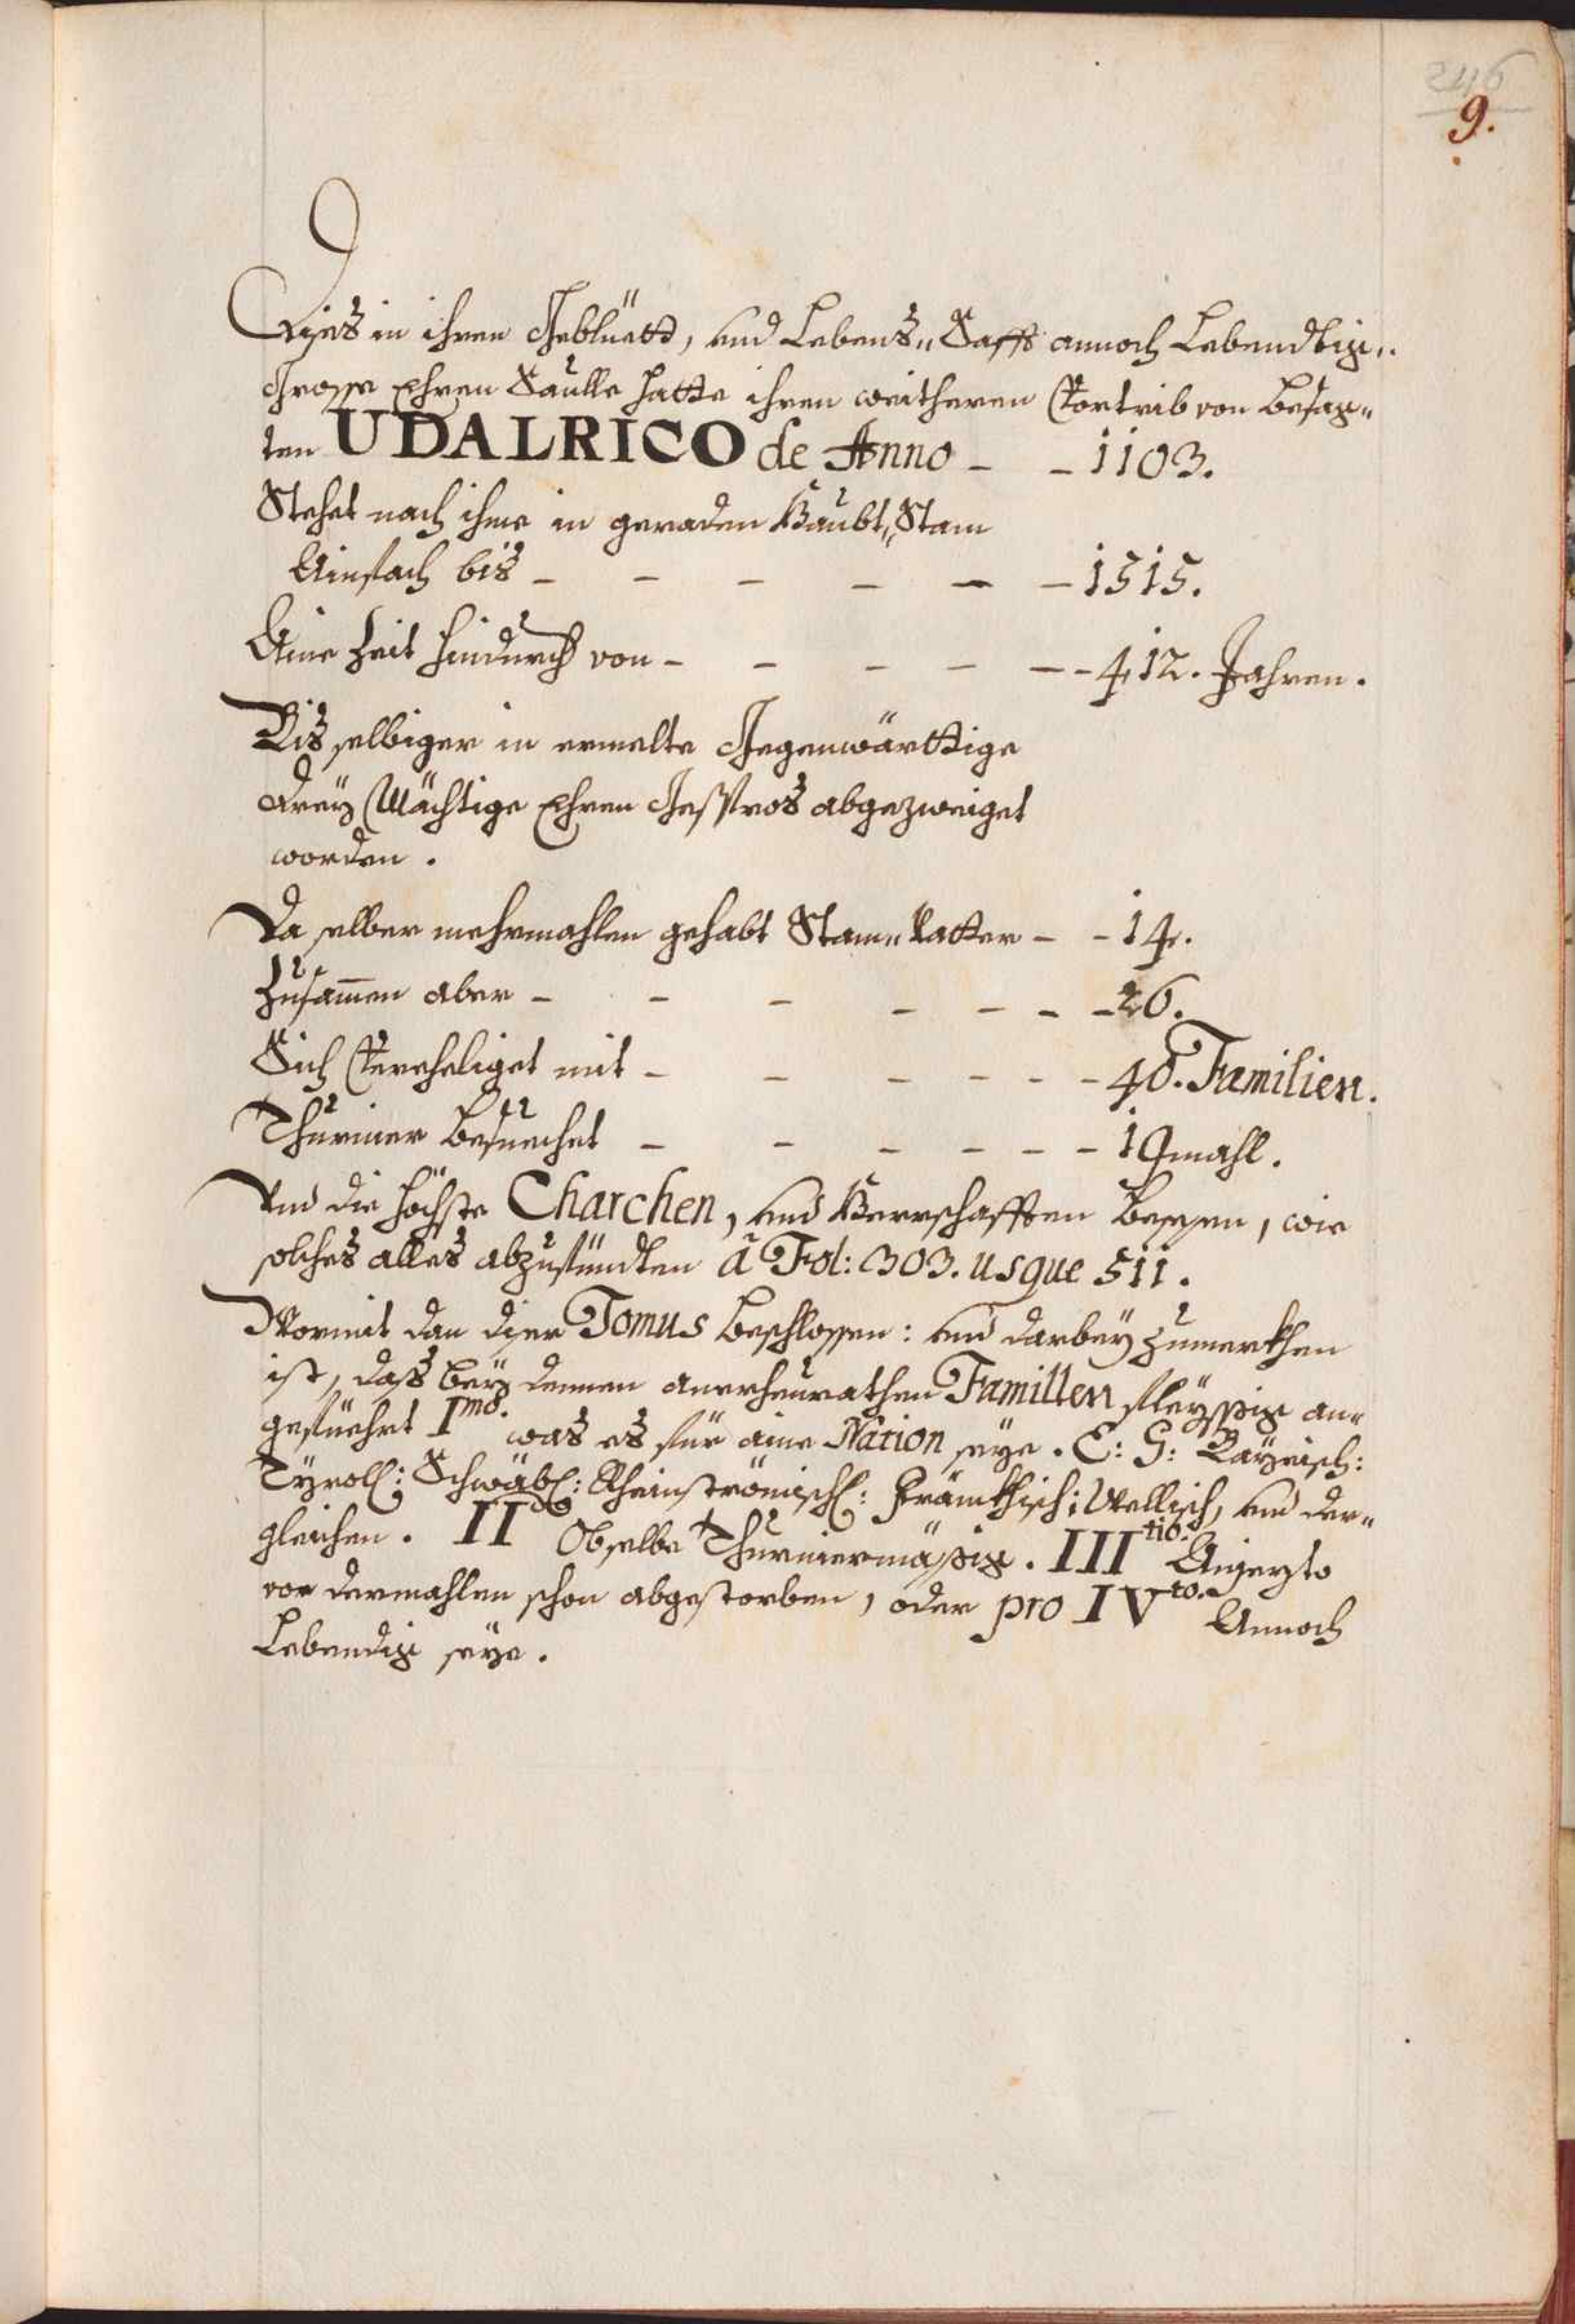 246
9.
Dises in ihren Geblüett, und Lebens„ Safft annoch Lebendtig„
Grosse Ehren Saulle hatte ihren weitheren Vortrib von besag„
ten UDALRICO de Anno - - 1103.
Stehet nach ihme in geraden Haubt„Stam
Ainfach bis - - - - - - 1515.
Aine Zeit hindurch von - - - - - - 412. Jahren.
Bis selbiger in ermelte Gegenwärttige
drey Mächtige Ehren Gesspros abgezweiget
worden.
Da selber mehrmahlen gehabt Stam„Vatter - - 14.
Zusam̄en aber - - - - - - - 26.
Sich Vereheliget mit - - - - - - 40. Familien.
Thurnier besuechet - - - - - - 19mahl.
Und die höchste Charchen, und Herrschafften besessen, wie
solches alles abzufündten à Fol: 303. usque 511.
Wormit dan diser Tomus beschlossen: und darbey zumerkhen
ist, dass bey dennen anerheurathen Famillen fleyssig an„
gefüehrt Imo. was es für aine Nation seye. E: G: Bayrisch:
Tyroll: Schwäbl: Rheinströmischl: Fränkhisch: Wellisch, und der„
gleichen. IIdo Ob selbe Thurniermäßig. IIItio. Aijezto
vor dermahlen schon abgestorben, oder pro IVto. Annoch
Lebendig seye.